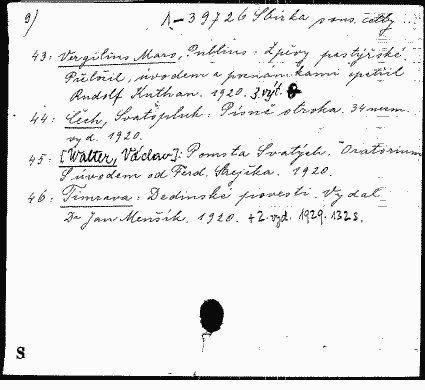 9)
A-39726 Sbírka souv. četby
43: Vergilius Maro, Publius: Zpěvy pastýřské.
Přeložil, úvodem a poznámkami opatřil
Rudolf Kuthan. 1920. 3. výt.
44: Čech, Svatopluk: Písně otroka. 34 nezm.
vyd. 1920.
45: [Walter, Václav]: Pomsta Svatých. Oratorium
S úvodem od Ferd. Krejčka. 1920.
46: Timrava: Dedinské povesti. Vydal
Dr Jan Menšík. 1920. + 2. vyd. 1929. 132 s.
S